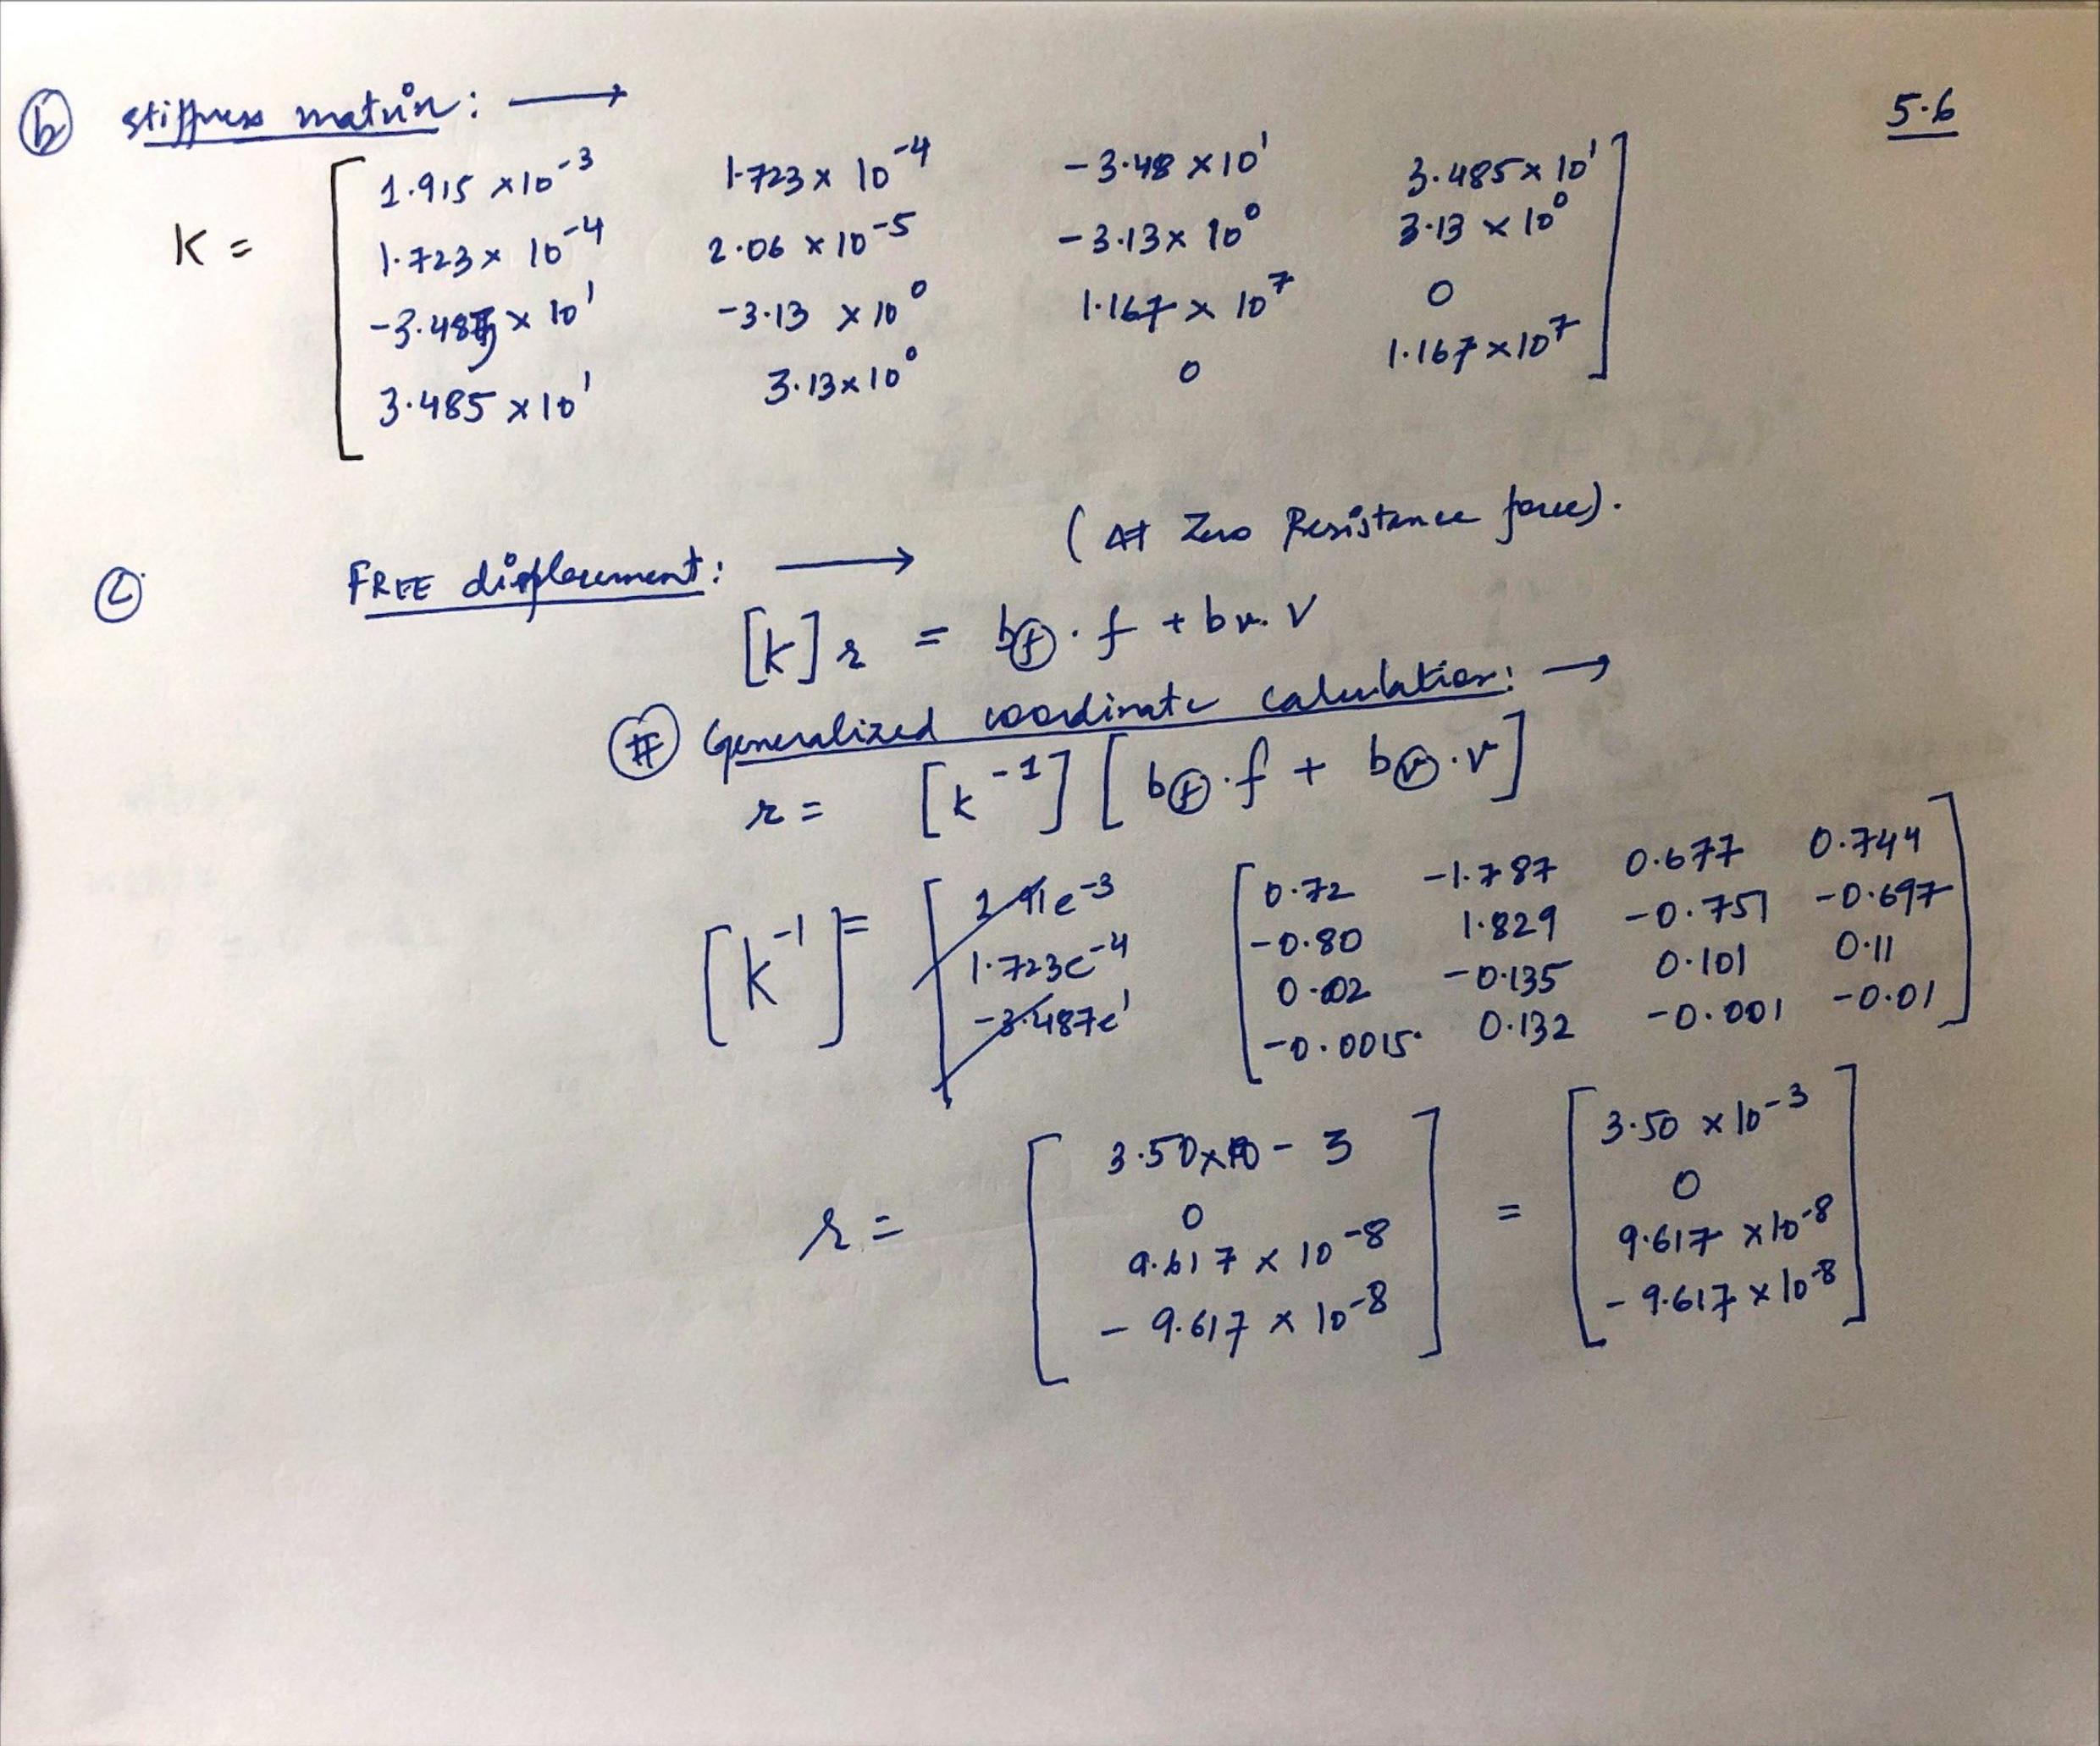 ⓑ stiffness matrix : ⟶ 5.6
K = [ 1.915 ×10⁻³ 1.723 × 10⁻⁴ -3.48 ×10¹ 3.485 × 10¹ ]
1.723 × 10⁻⁴ 2.06 × 10⁻⁵ -3.13 × 10⁰ 3.13 × 10⁰
-3.485 × 10¹ -3.13 × 10⁰ 1.167 × 10⁷ 0
3.485 ×10¹ 3.13×10⁰ 0 1.167 ×10⁷
ⓒ FREE displacement : ⟶ (At Zero Resistance force).
[K] r = bⓕ . f + bv. V
(#) Generalized coordinate calculation: ⟶
r = [k⁻¹] [ bⓕ.f + bⓥ.v ]
[k⁻¹] = [ 0.72 -1.787 0.677 0.744 ]
1.723e⁻⁴ -0.80 1.829 -0.751 -0.697
-3.487e¹ 0.02 -0.135 0.101 0.11
-0.0015 0.132 -0.001 -0.01
r = [ 3.50×10 - 3 ] = [ 3.50 ×10⁻³ ]
0 0
9.617 × 10⁻⁸ 9.617 ×10⁻⁸
- 9.617 × 10⁻⁸ - 9.617 × 10⁻⁸